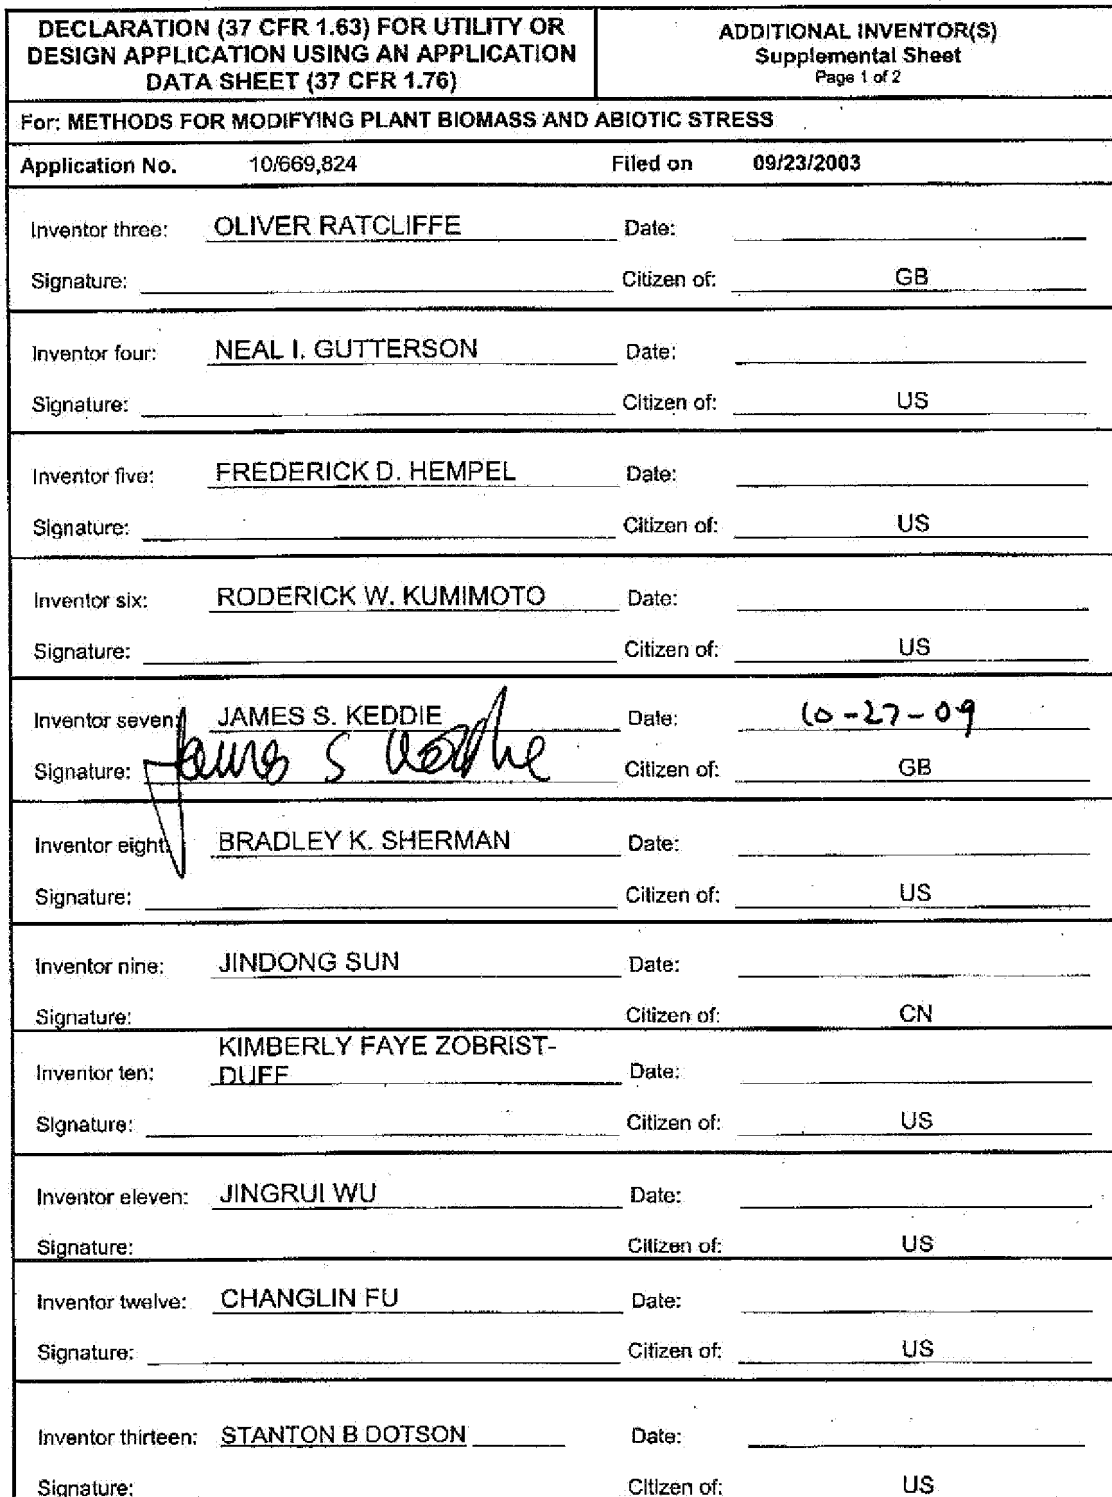 DECLARATION (37 CFR 1.63) FOR UTILITY OR
DESIGN APPLICATION USING AN APPLICATION
DATA SHEET (37 CFR 1.76)
ADDITIONAL INVENTOR(S)
Supplemental Sheet
Page 1 of 2
For: METHODS FOR MODIFYING PLANT BIOMASS AND ABIOTIC STRESS
Application No. 10/669,824 Filed on 09/23/2003
Inventor three: OLIVER RATCLIFFE Date:
Signature: Citizen of: GB
Inventor four: NEAL I. GUTTERSON Date:
Signature: Citizen of: US
Inventor five: FREDERICK D. HEMPEL Date:
Signature: Citizen of: US
Inventor six: RODERICK W. KUMIMOTO Date:
Signature: Citizen of: US
Inventor seven: JAMES S. KEDDIE Date: 10-27-09
Signature: James S Keddie Citizen of: GB
Inventor eight: BRADLEY K. SHERMAN Date:
Signature: Citizen of: US
Inventor nine: JINDONG SUN Date:
Signature: Citizen of: CN
KIMBERLY FAYE ZOBRIST-
Inventor ten: DUFF Date:
Signature: Citizen of: US
Inventor eleven: JINGRUI WU Date:
Signature: Citizen of: US
Inventor twelve: CHANGLIN FU Date:
Signature: Citizen of: US
Inventor thirteen: STANTON B DOTSON Date:
Signature: Citizen of: US